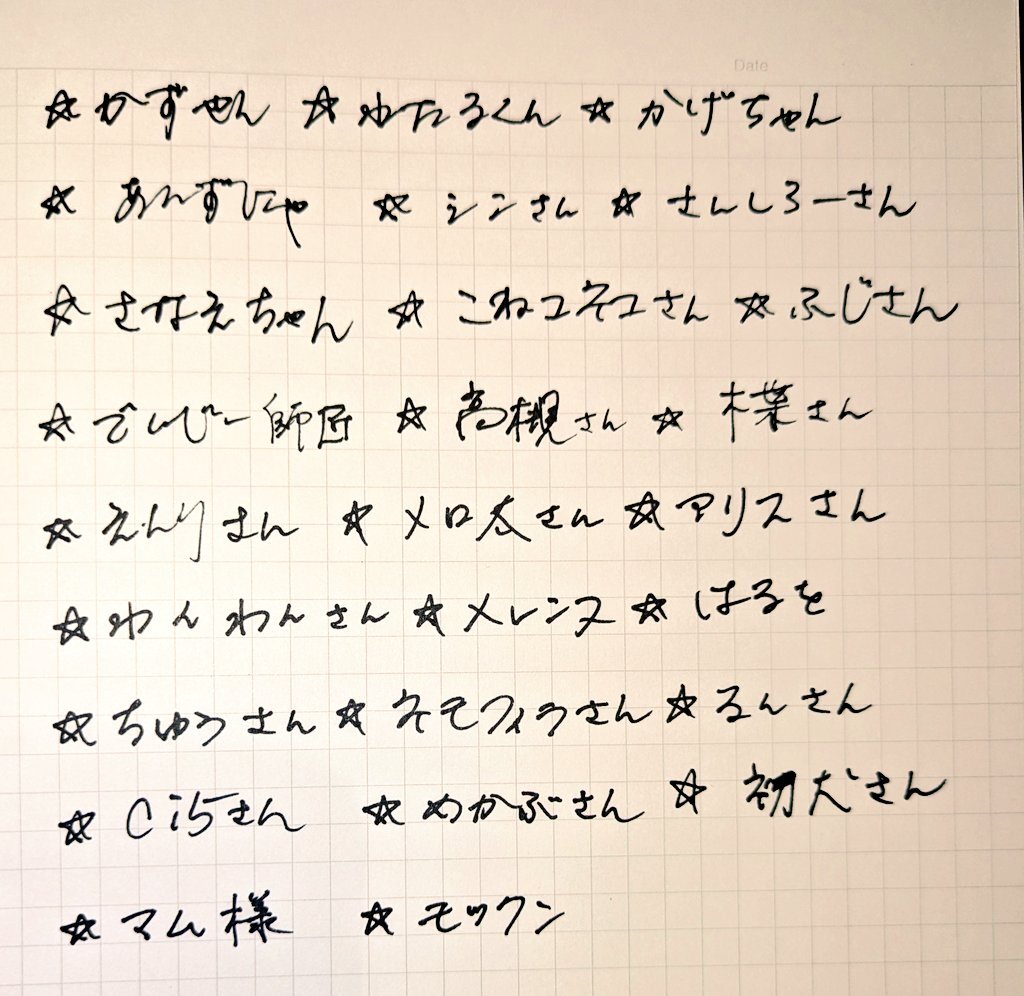 Date
☆かずやん ☆わたるくん ☆かげちゃん
☆あんずひゃ ☆シンさん ☆さんしろーさん
☆さなえちゃん ☆こねコネコさん ☆ふじさん
☆でんびー師匠 ☆高槻さん ☆木葉さん
☆えんりさん ☆メロ太さん ☆アリスさん
☆わんわんさん ☆メレンヌ ☆はるを
☆ちゅうさん ☆ネモフィラさん ☆るんさん
☆めかぶさん ☆初犬さん
☆マム様 ☆モックン